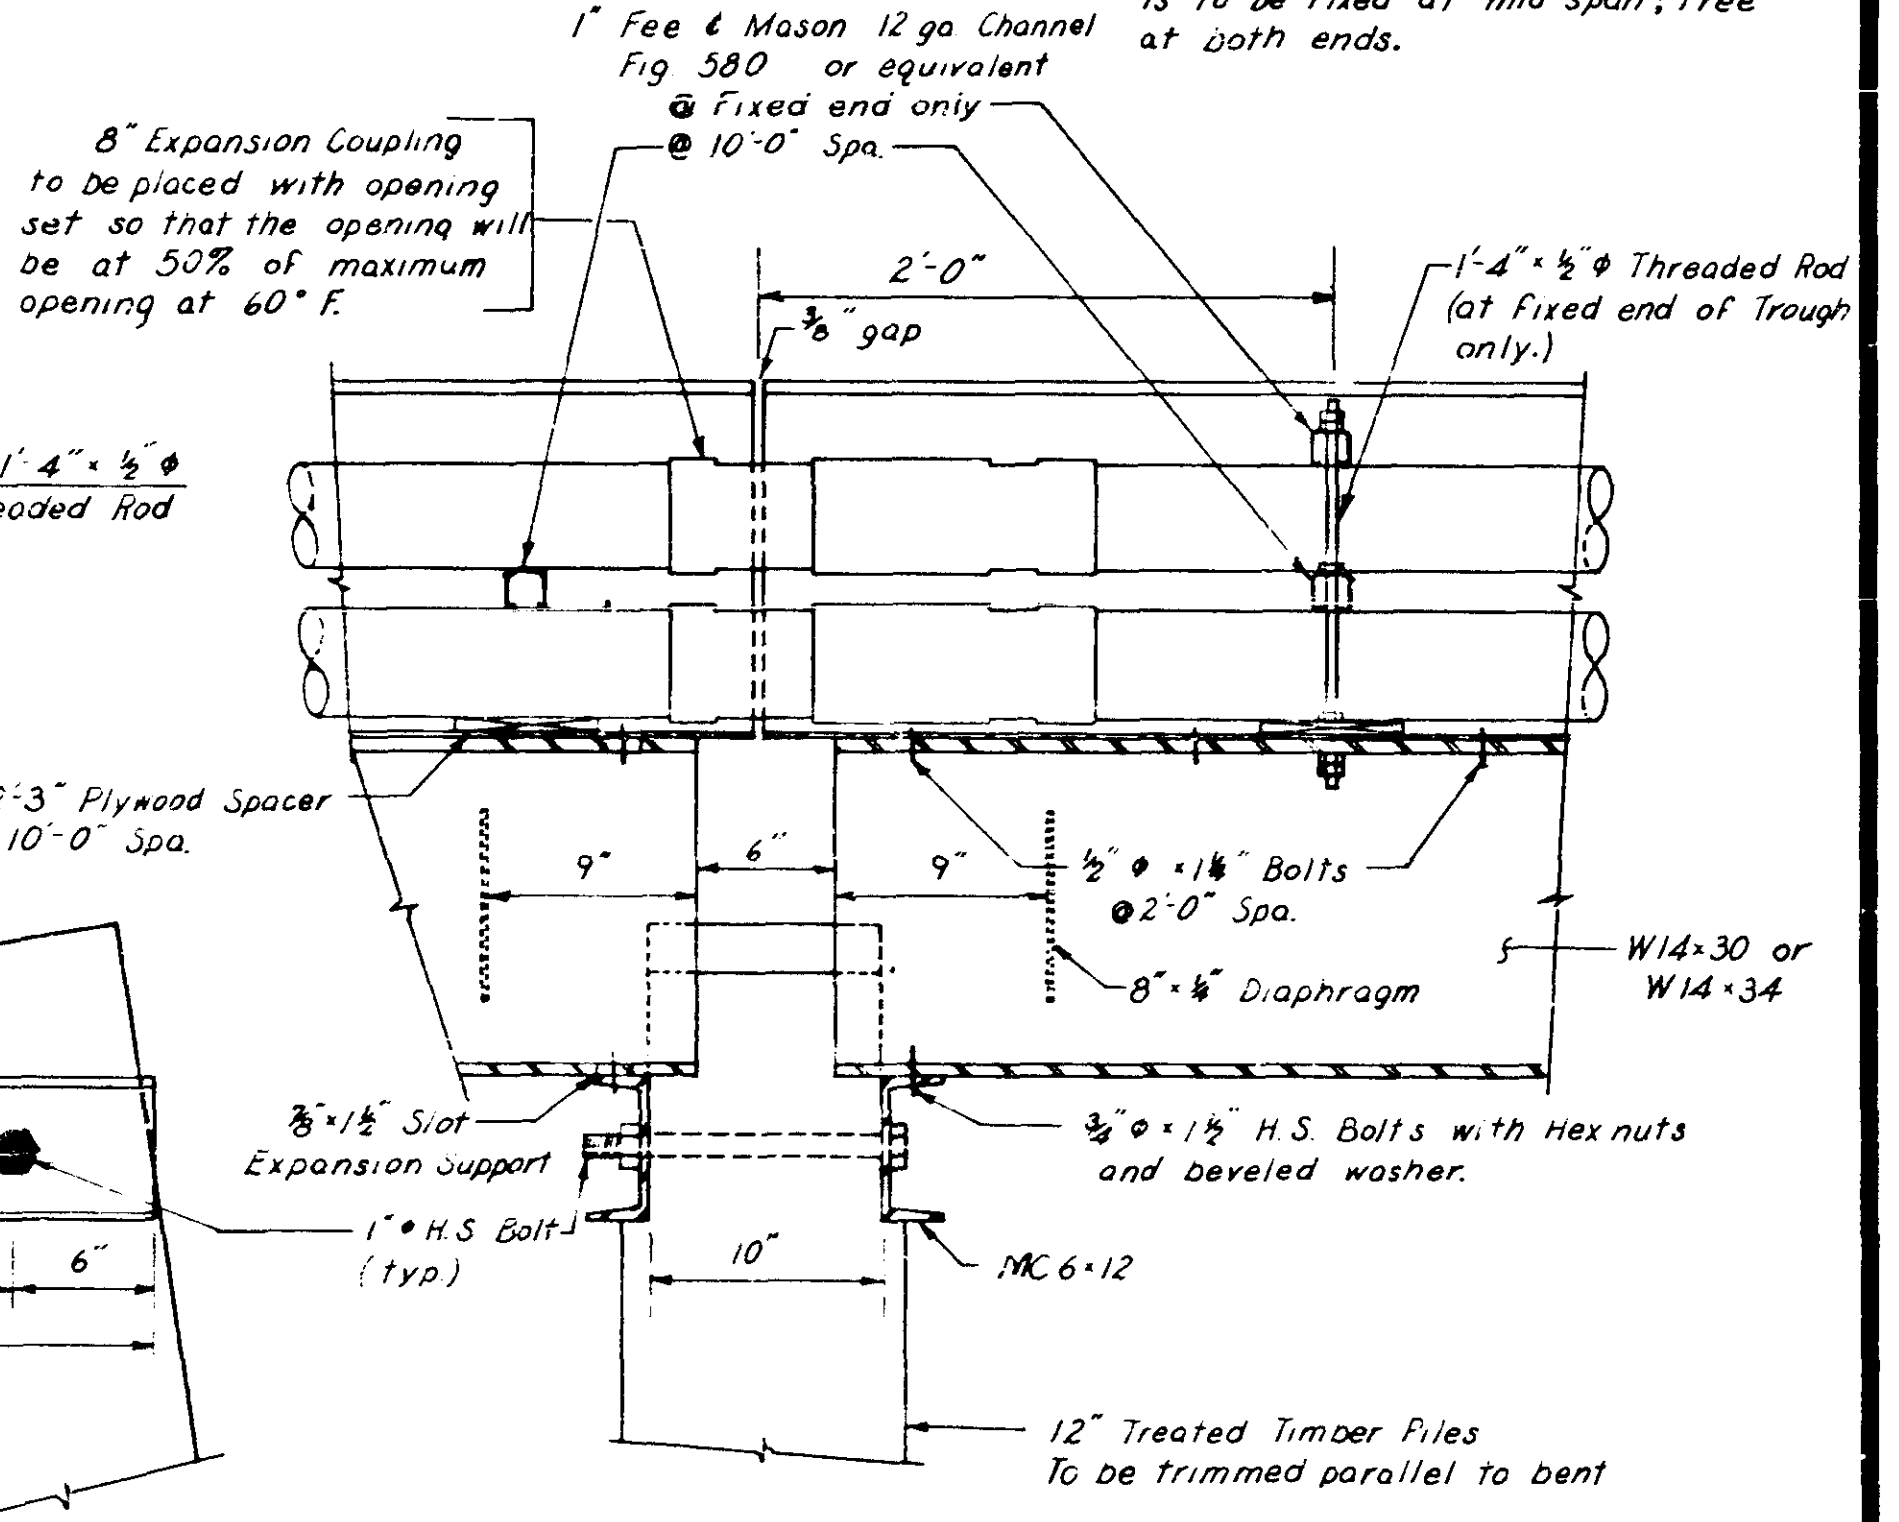 1" Fee & Mason 12 ga. Channel
Fig. 580 or equivalent
@ Fixed end only
@ 10'-0" Spa.
is to be fixed at mid span; free
at both ends.
8" Expansion Coupling
to be placed with opening
set so that the opening will
be at 50% of maximum
opening at 60° F.
2'-0"
3/8" gap
1'-4" × 1/2" φ Threaded Rod
(at fixed end of Trough
only.)
1'-4" × 1/2" φ
Rod
-3" Plywood Spacer
10'-0" Spa.
9"
6"
9"
1/2" φ × 1 1/4" Bolts
@ 2'-0" Spa.
W14×30 or
W14×34
8" × 1/4" Diaphragm
7/8" × 1 1/2" Slot
Expansion Support
3/4" φ × 1 1/2" H.S. Bolts with Hex nuts
and beveled washer.
1" φ H.S. Bolt
(typ.)
6"
10"
MC 6×12
12" Treated Timber Piles
To be trimmed parallel to bent